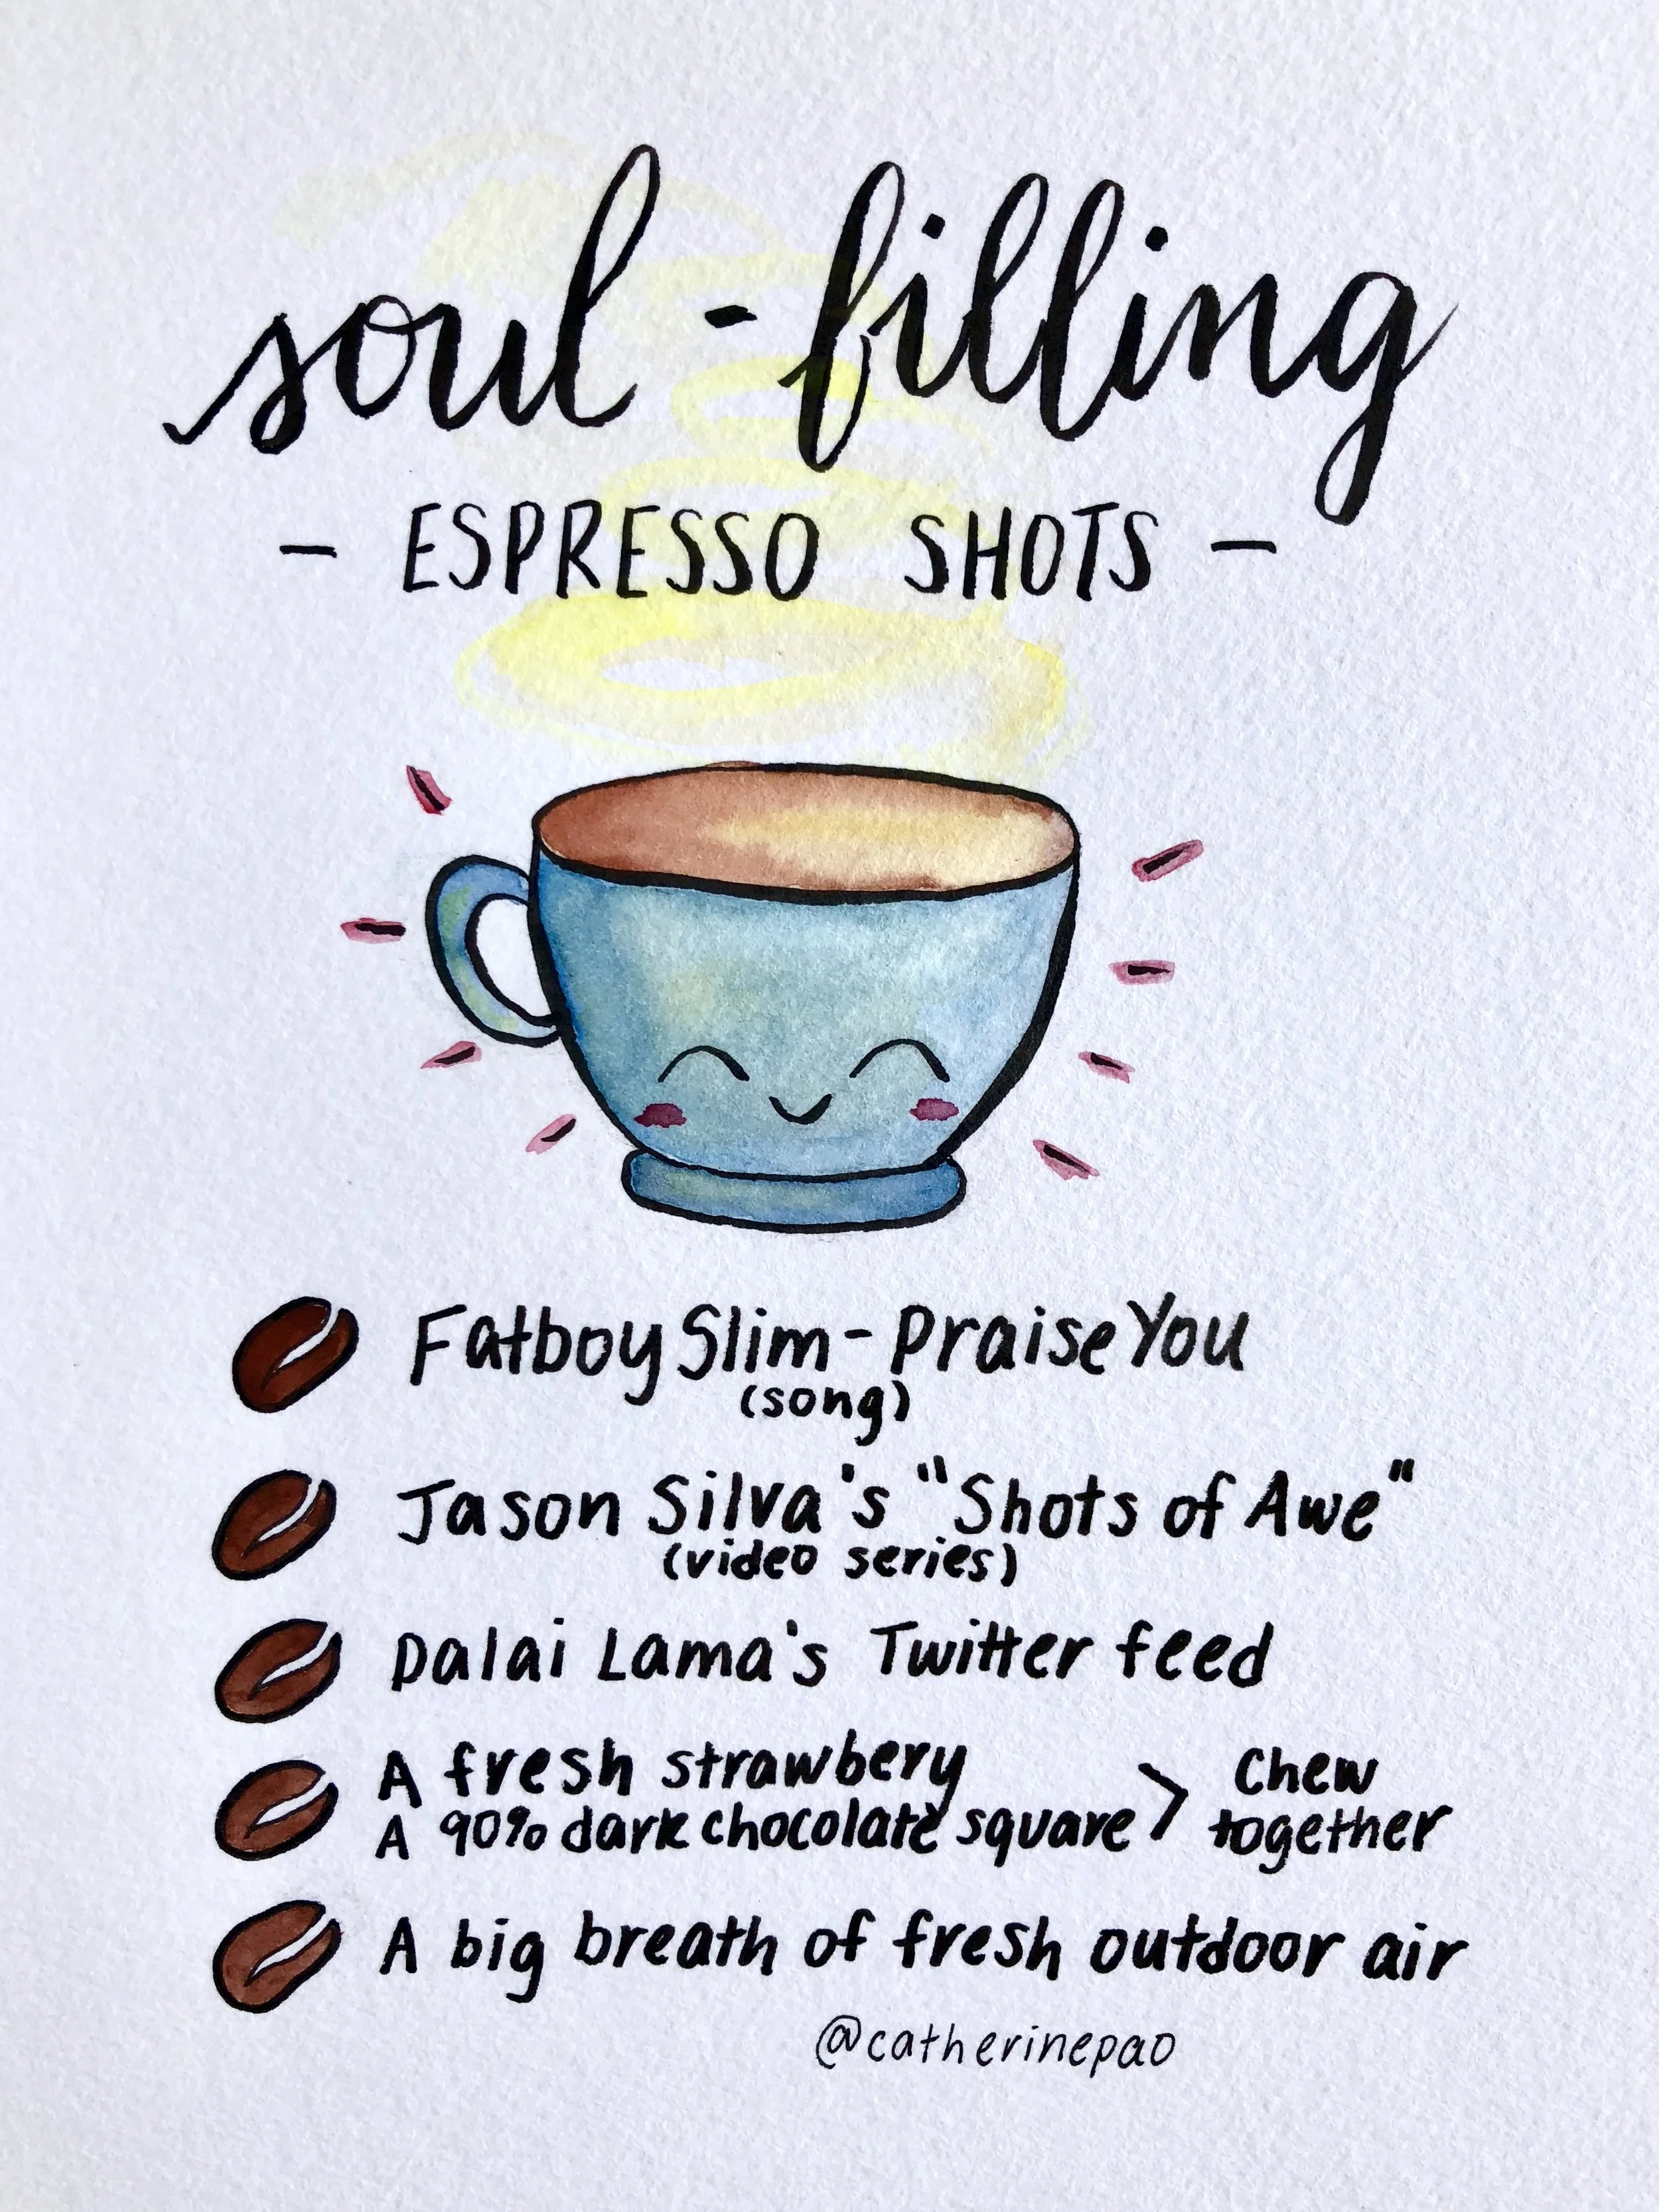 soul-filling
- ESPRESSO SHOTS -
Fatboy Slim - Praise You
(song)
Jason Silva's "Shots of Awe"
(video series)
Dalai Lama's Twitter feed
A fresh strawbery
A 90% dark chocolate square > Chew together
A big breath of fresh outdoor air
@catherinepao